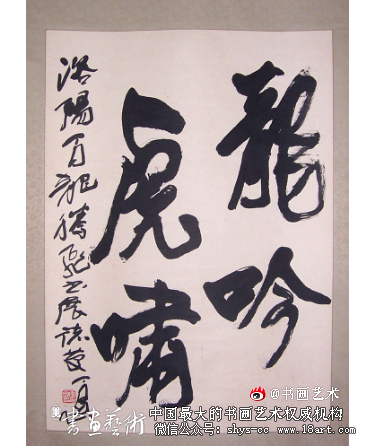 龍吟
虎嘯
洛陽百龍騰飛書展
@书画艺术
書畫藝術
中国最大的书画艺术权威机构
微信公众号：shys-cc www.18art.com